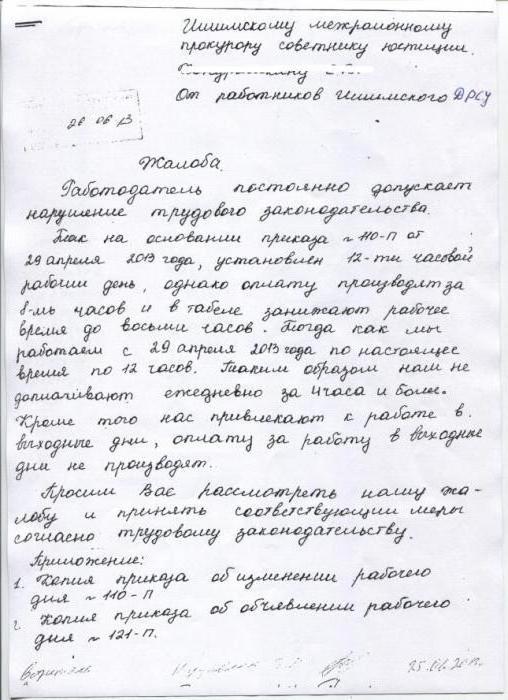 Ишимскому межрайонному
прокурору советнику юстиции.
От работников Ишимского ДРСУ
26 06 13
Жалоба.
Работодатель постоянно допускает
нарушение трудового законодательства.
Так на основании приказа ~ 110-П от
29 апреля 2013 года, установлен 12-ти часовой
рабочий день, однако оплату производят за
8-мь часов и в табеле занижают рабочее
время до восьми часов. Тогда как мы
работаем с 29 апреля 2013 года по настоящее
время по 12 часов. Таким образом нам не
доплачивают ежедневно за 4 часа и более.
Кроме того нас привлекают к работе в
выходные дни, оплату за работу в выходные
дни не производят.
Просим Вас рассмотреть нашу жа-
лобу и принять соответствующии меры
согласно трудовому законодательству.
Приложение:
1. Копия приказа об изменении рабочего
дня ~ 110-П
2. Копия приказа об обчявлении рабочего
дня ~ 121-П.
25.06.201